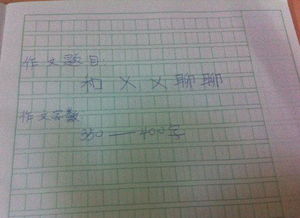 作文题目
和乂乂聊聊
作文字数
350——400字